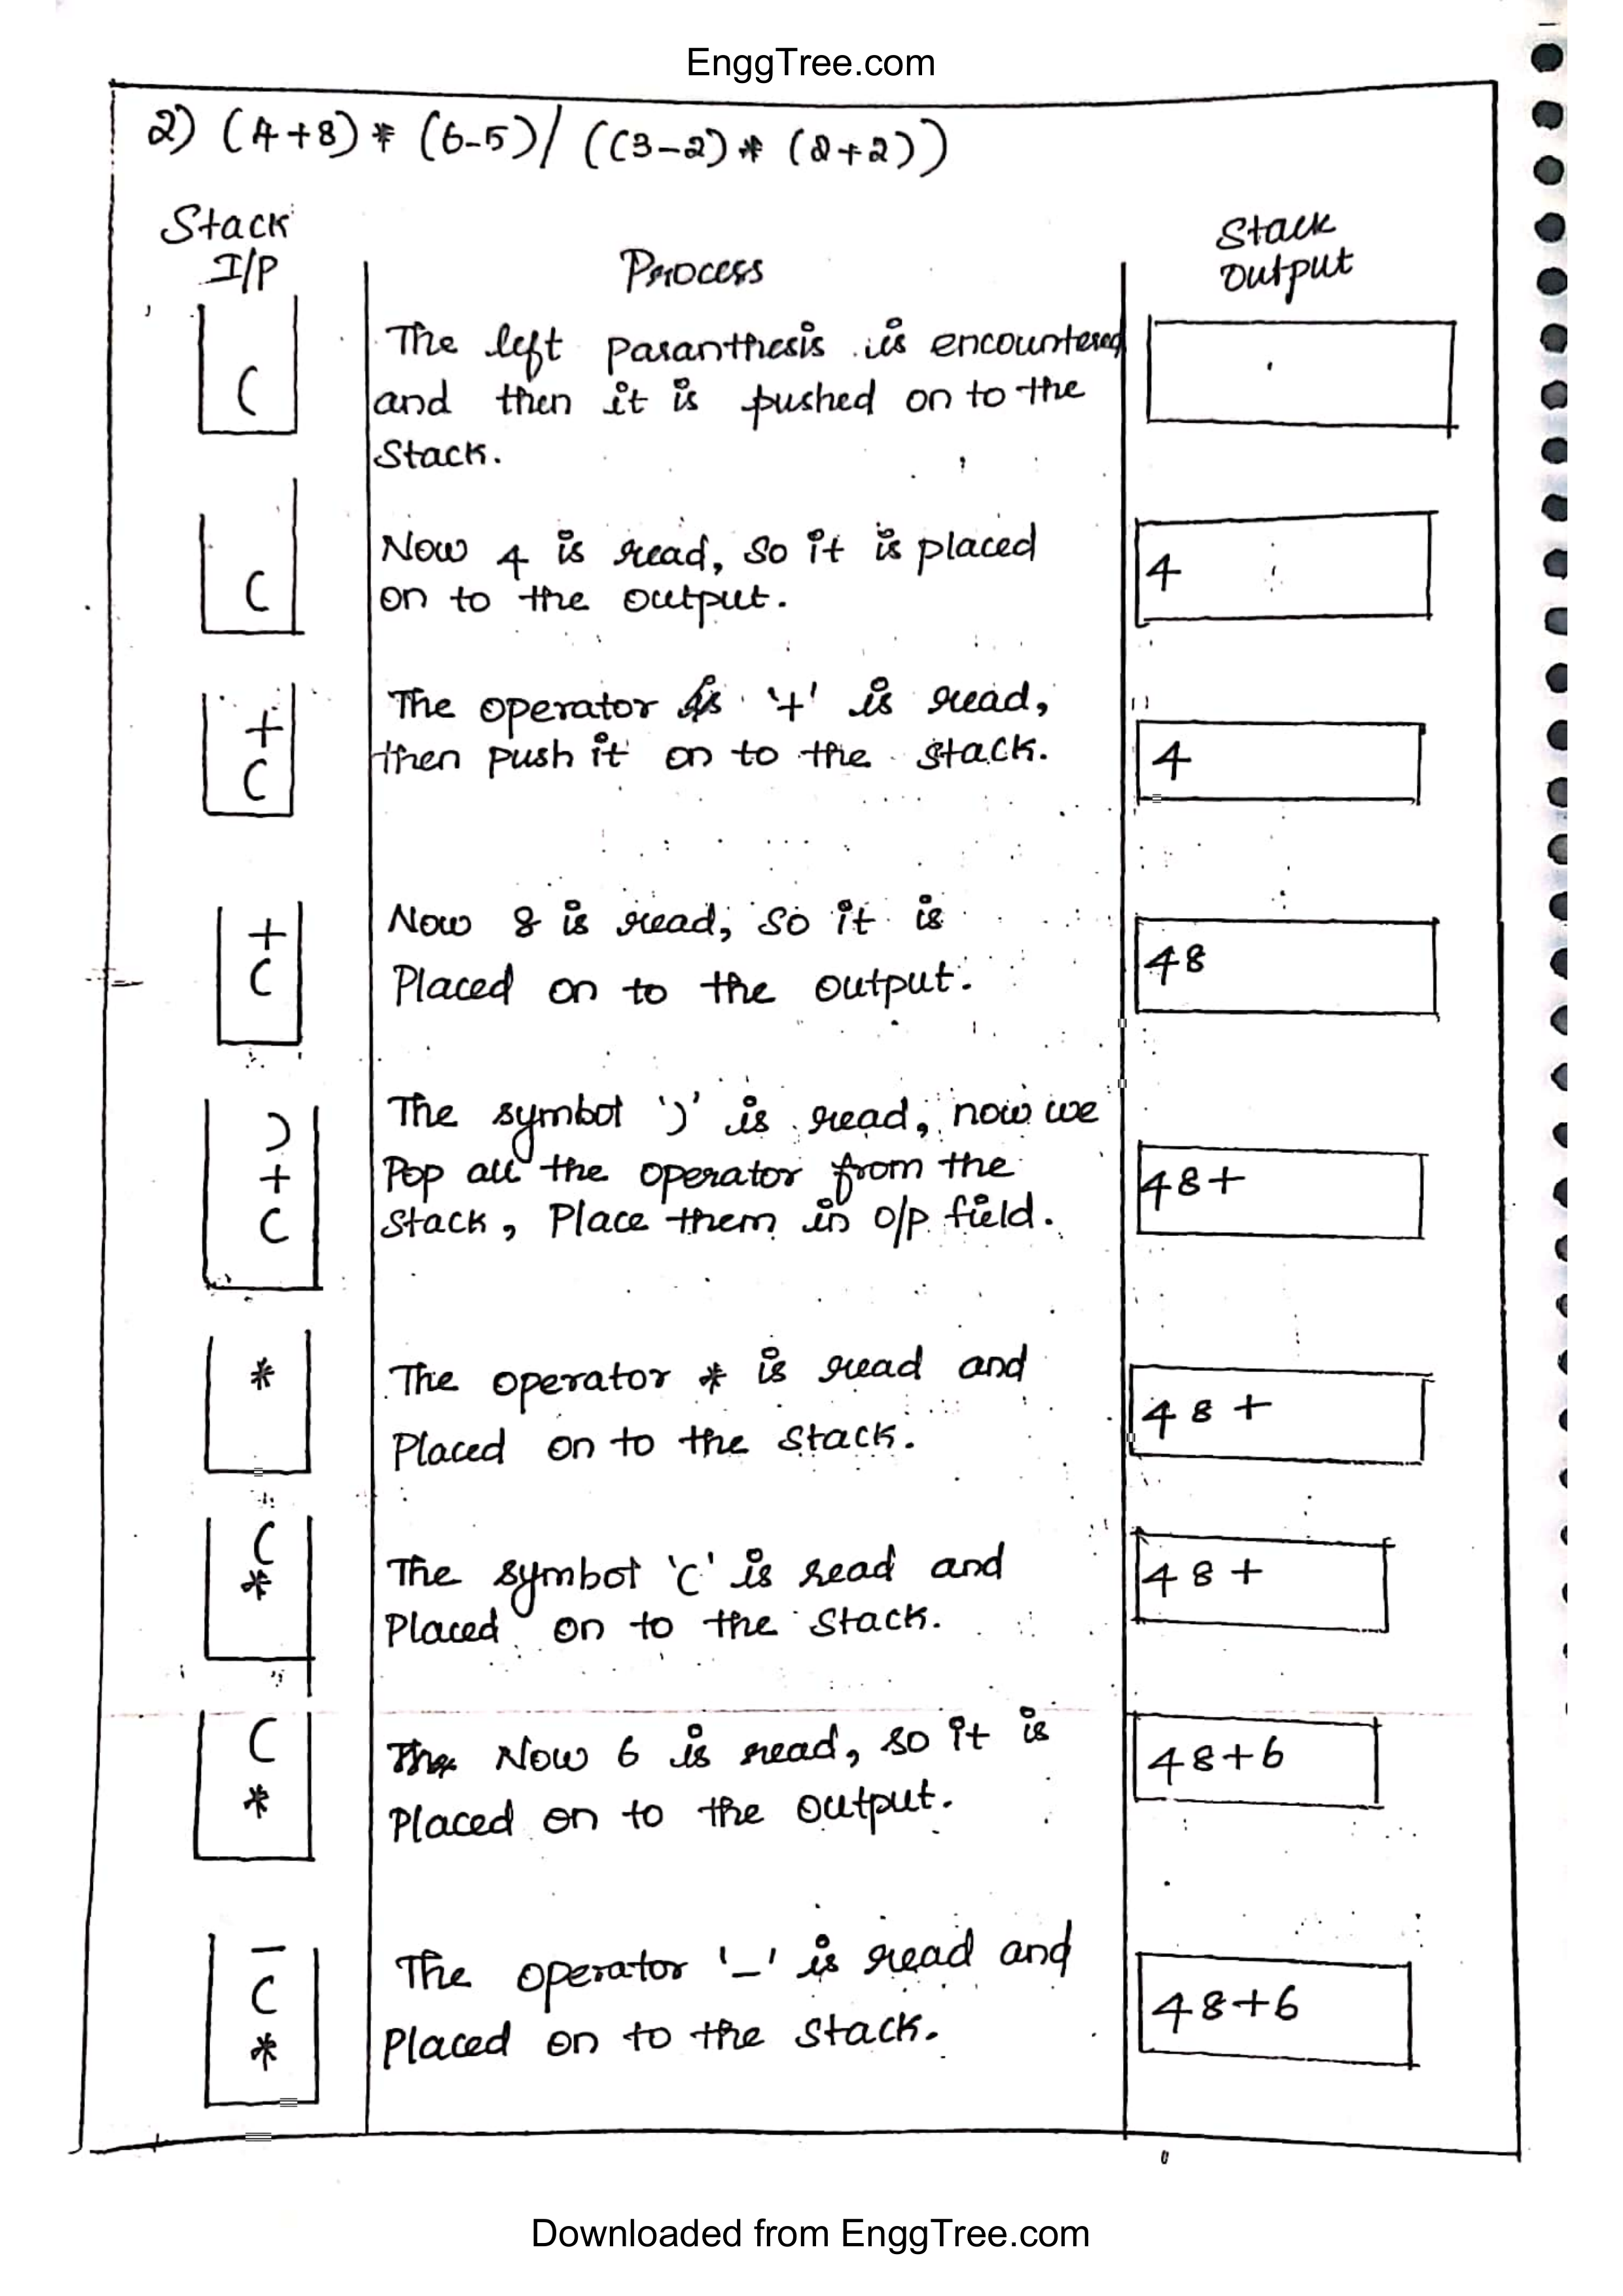 EnggTree.com
2) (4+8) * (6-5) / ((3-2) * (2+2))
Stack
I/P
Process
Stack
output
(
The left paranthesis is encountered
and then it is pushed on to the
Stack.
(
Now 4 is read, so it is placed
on to the output.
4
+
(
The operator is '+' is read,
then push it on to the stack.
4
+
(
Now 8 is read, so it is
Placed on to the output.
48
)
+
(
The symbol ')' is read, now we
Pop all the operator from the
Stack, Place them in o/p field.
48+
*
The operator * is read and
Placed on to the stack.
48+
(
*
The symbol '(' is read and
Placed on to the stack.
48+
(
*
Now 6 is read, so it is
Placed on to the output.
48+6
-
(
*
The operator '-' is read and
Placed on to the stack.
48+6
Downloaded from EnggTree.com